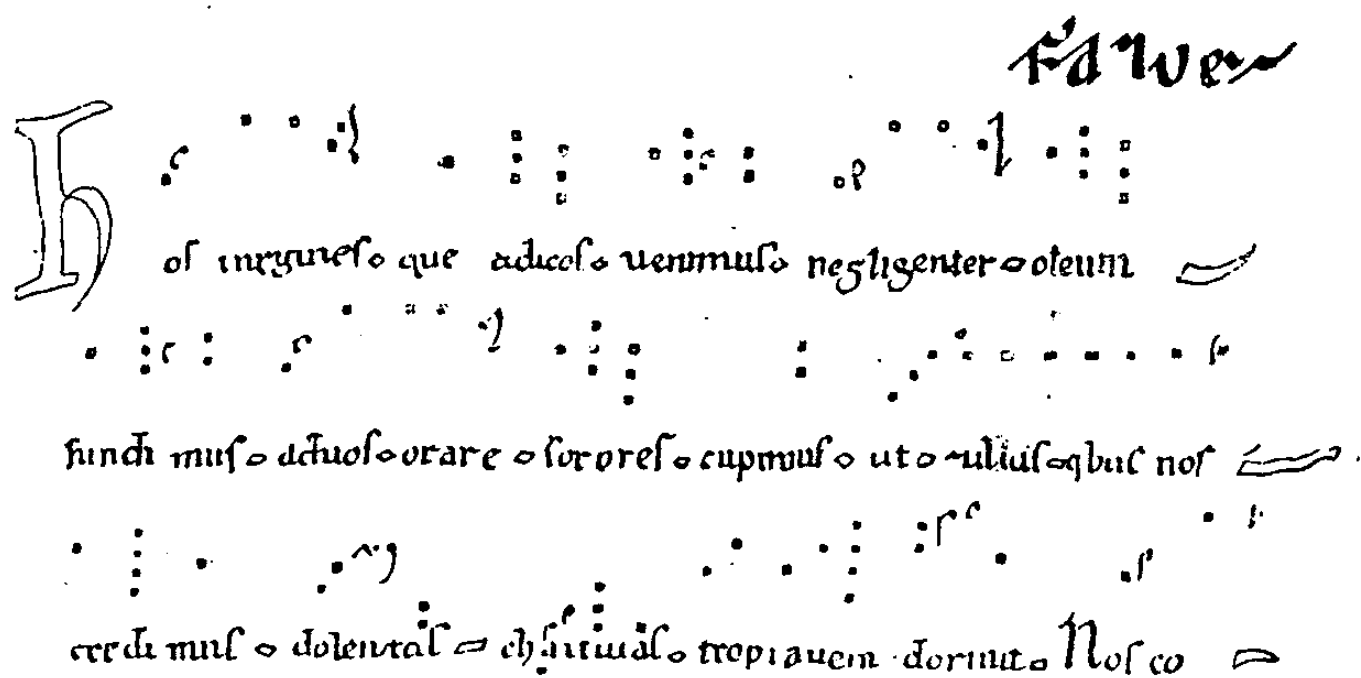 os uirgines que aduos uenimus negligenter oleum
fundimus aduos orare sorores cupimus ut quibus nos
credimus dolentas chaitiuas trop i auem dormit Nos co